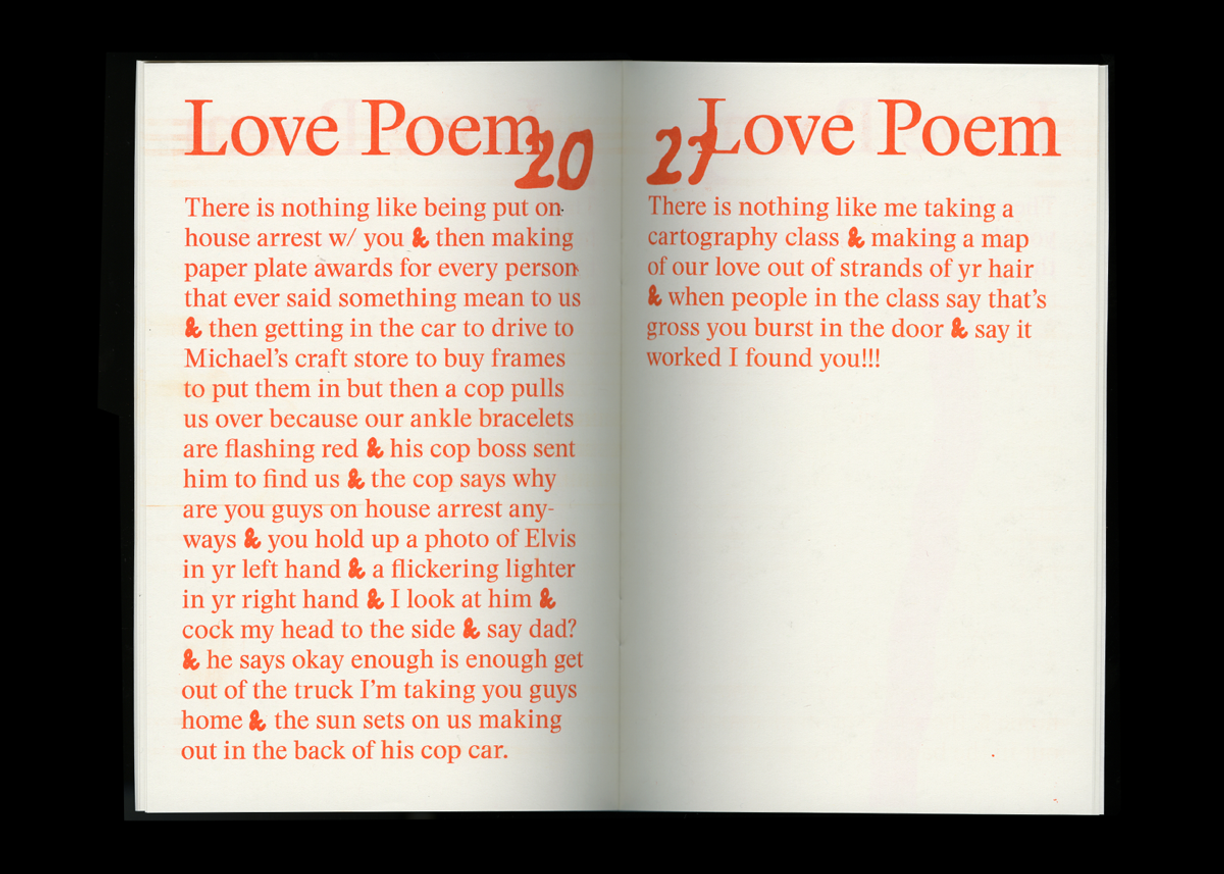 Love Poem 20
There is nothing like being put on
house arrest w/ you & then making
paper plate awards for every person
that ever said something mean to us
& then getting in the car to drive to
Michael’s craft store to buy frames
to put them in but then a cop pulls
us over because our ankle bracelets
are flashing red & his cop boss sent
him to find us & the cop says why
are you guys on house arrest any-
ways & you hold up a photo of Elvis
in yr left hand & a flickering lighter
in yr right hand & I look at him &
cock my head to the side & say dad?
& he says okay enough is enough get
out of the truck I’m taking you guys
home & the sun sets on us making
out in the back of his cop car.
27 Love Poem
There is nothing like me taking a
cartography class & making a map
of our love out of strands of yr hair
& when people in the class say that’s
gross you burst in the door & say it
worked I found you!!!